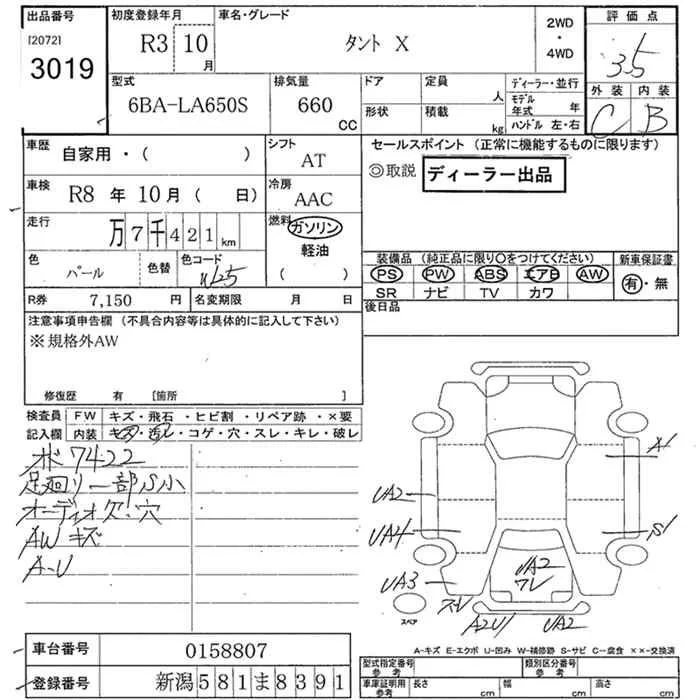 出品番号 初度登録年月 車名・グレード 2WD ・ 4WD 評価点
[2072] 3019 R3 10月 タント X 3.5
型式 排気量 ドア 定員 人 ディーラー・並行 外装 内装
6BA-LA650S 660 CC 形状 積載 kg モデル年式 年 ハンドル 左・右 C B
車歴 自家用・( ) シフト AT セールスポイント (正常に機能するものに限ります)
◎取説 ディーラー出品
車検 R8 年 10 月 ( 日) 冷房 AAC
走行 万 7 千 4 2 1 km 燃料 ガソリン 軽油 ( )
色 パール 色替 色コード W25
装備品 (純正品に限り○をつけてください) 新車保証書
PS PW ABS エアB AW 有・無
SR ナビ TV カワ
R券 7,150 円 名変期限 月 日 後日品
注意事項申告欄 (不具合内容等は具体的に記入して下さい)
※規格外AW
修復歴 有 [箇所 ]
検査員 FW キズ・飛石・ヒビ割・リペア跡・×要
記入欄 内装 キズ・汚レ・コゲ・穴・スレ・キレ・破レ
ボ 7422
足廻リ一部S小
オーディオ欠!穴
AW キズ
A-U
A1
UA2
UA4
S1
UA3
UA2
ワレ
スレ
A2U1
UA2
スペア
A-キズ E-エクボ U-凹み W-補修跡 S-サビ C-腐食 ××-交換済
車台番号 0158807
登録番号 新潟 581 ま 8391
型式指定番号 参考 類別区分番号 参考
車庫証明用 参考 長さ cm 幅 cm 高さ cm